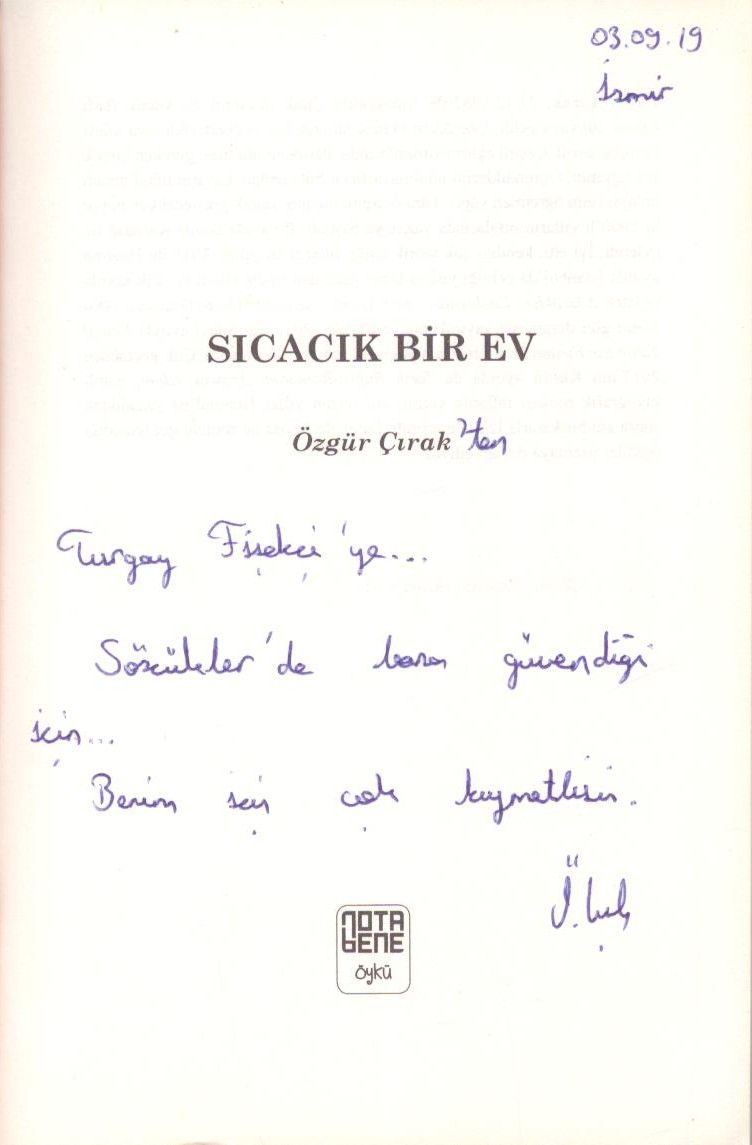 03.09.19
İzmir
SICACIK BİR EV
Özgür Çırak 'tan
Turgay Fişekçi'ye...
Sözcükler'de bana güvendiği
için...
Benim için çok kıymetlisin.
NOTA
BENE
öykü